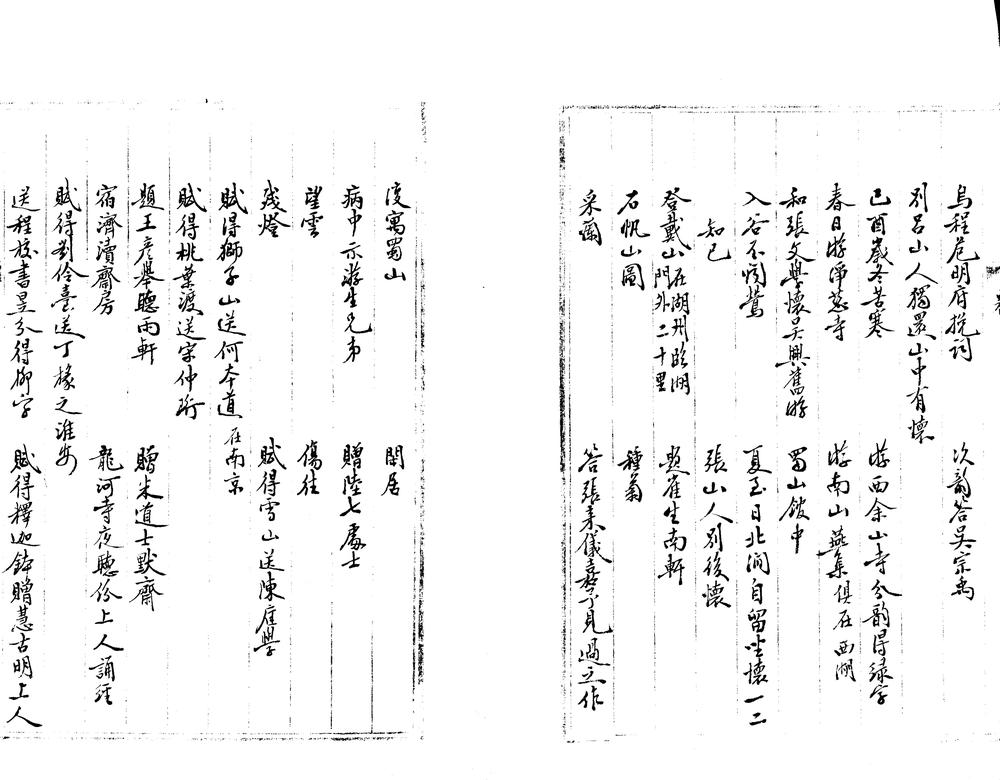 烏程范明府挽詞　次韻答吳宗禹
別呂山人獨還山中有懷
己酉歲冬苦寒　游西余山寺分韻得綠字
春日游淨慈寺　游南山燕集俱在西湖
和張文學懷吳興舊游　蜀山館中
入谷不聞鶯　夏至日北澗自留坐懷一二
知己　張山人別後懷
登戴山在湖州臨湖門外二十里　題崔生南軒
石帆山圖　種菊
采蘭　答張來儀嘉予見過之作
後寓蜀山　閒居
病中示游生兄弟　贈陸七處士
望雲　傷往
殘燈　賦得雪山送陳庭學
賦得獅子山送何本道在南京
賦得桃葉渡送宋仲珩
題王彥舉聽雨軒　贈朱道士默齋
宿濟瀆齋房　龍河寺夜聽份上人誦經
賦得劉伶臺送丁掾之淮安
送程校書昱分得柳字　賦得釋迦鉢贈慧古明上人